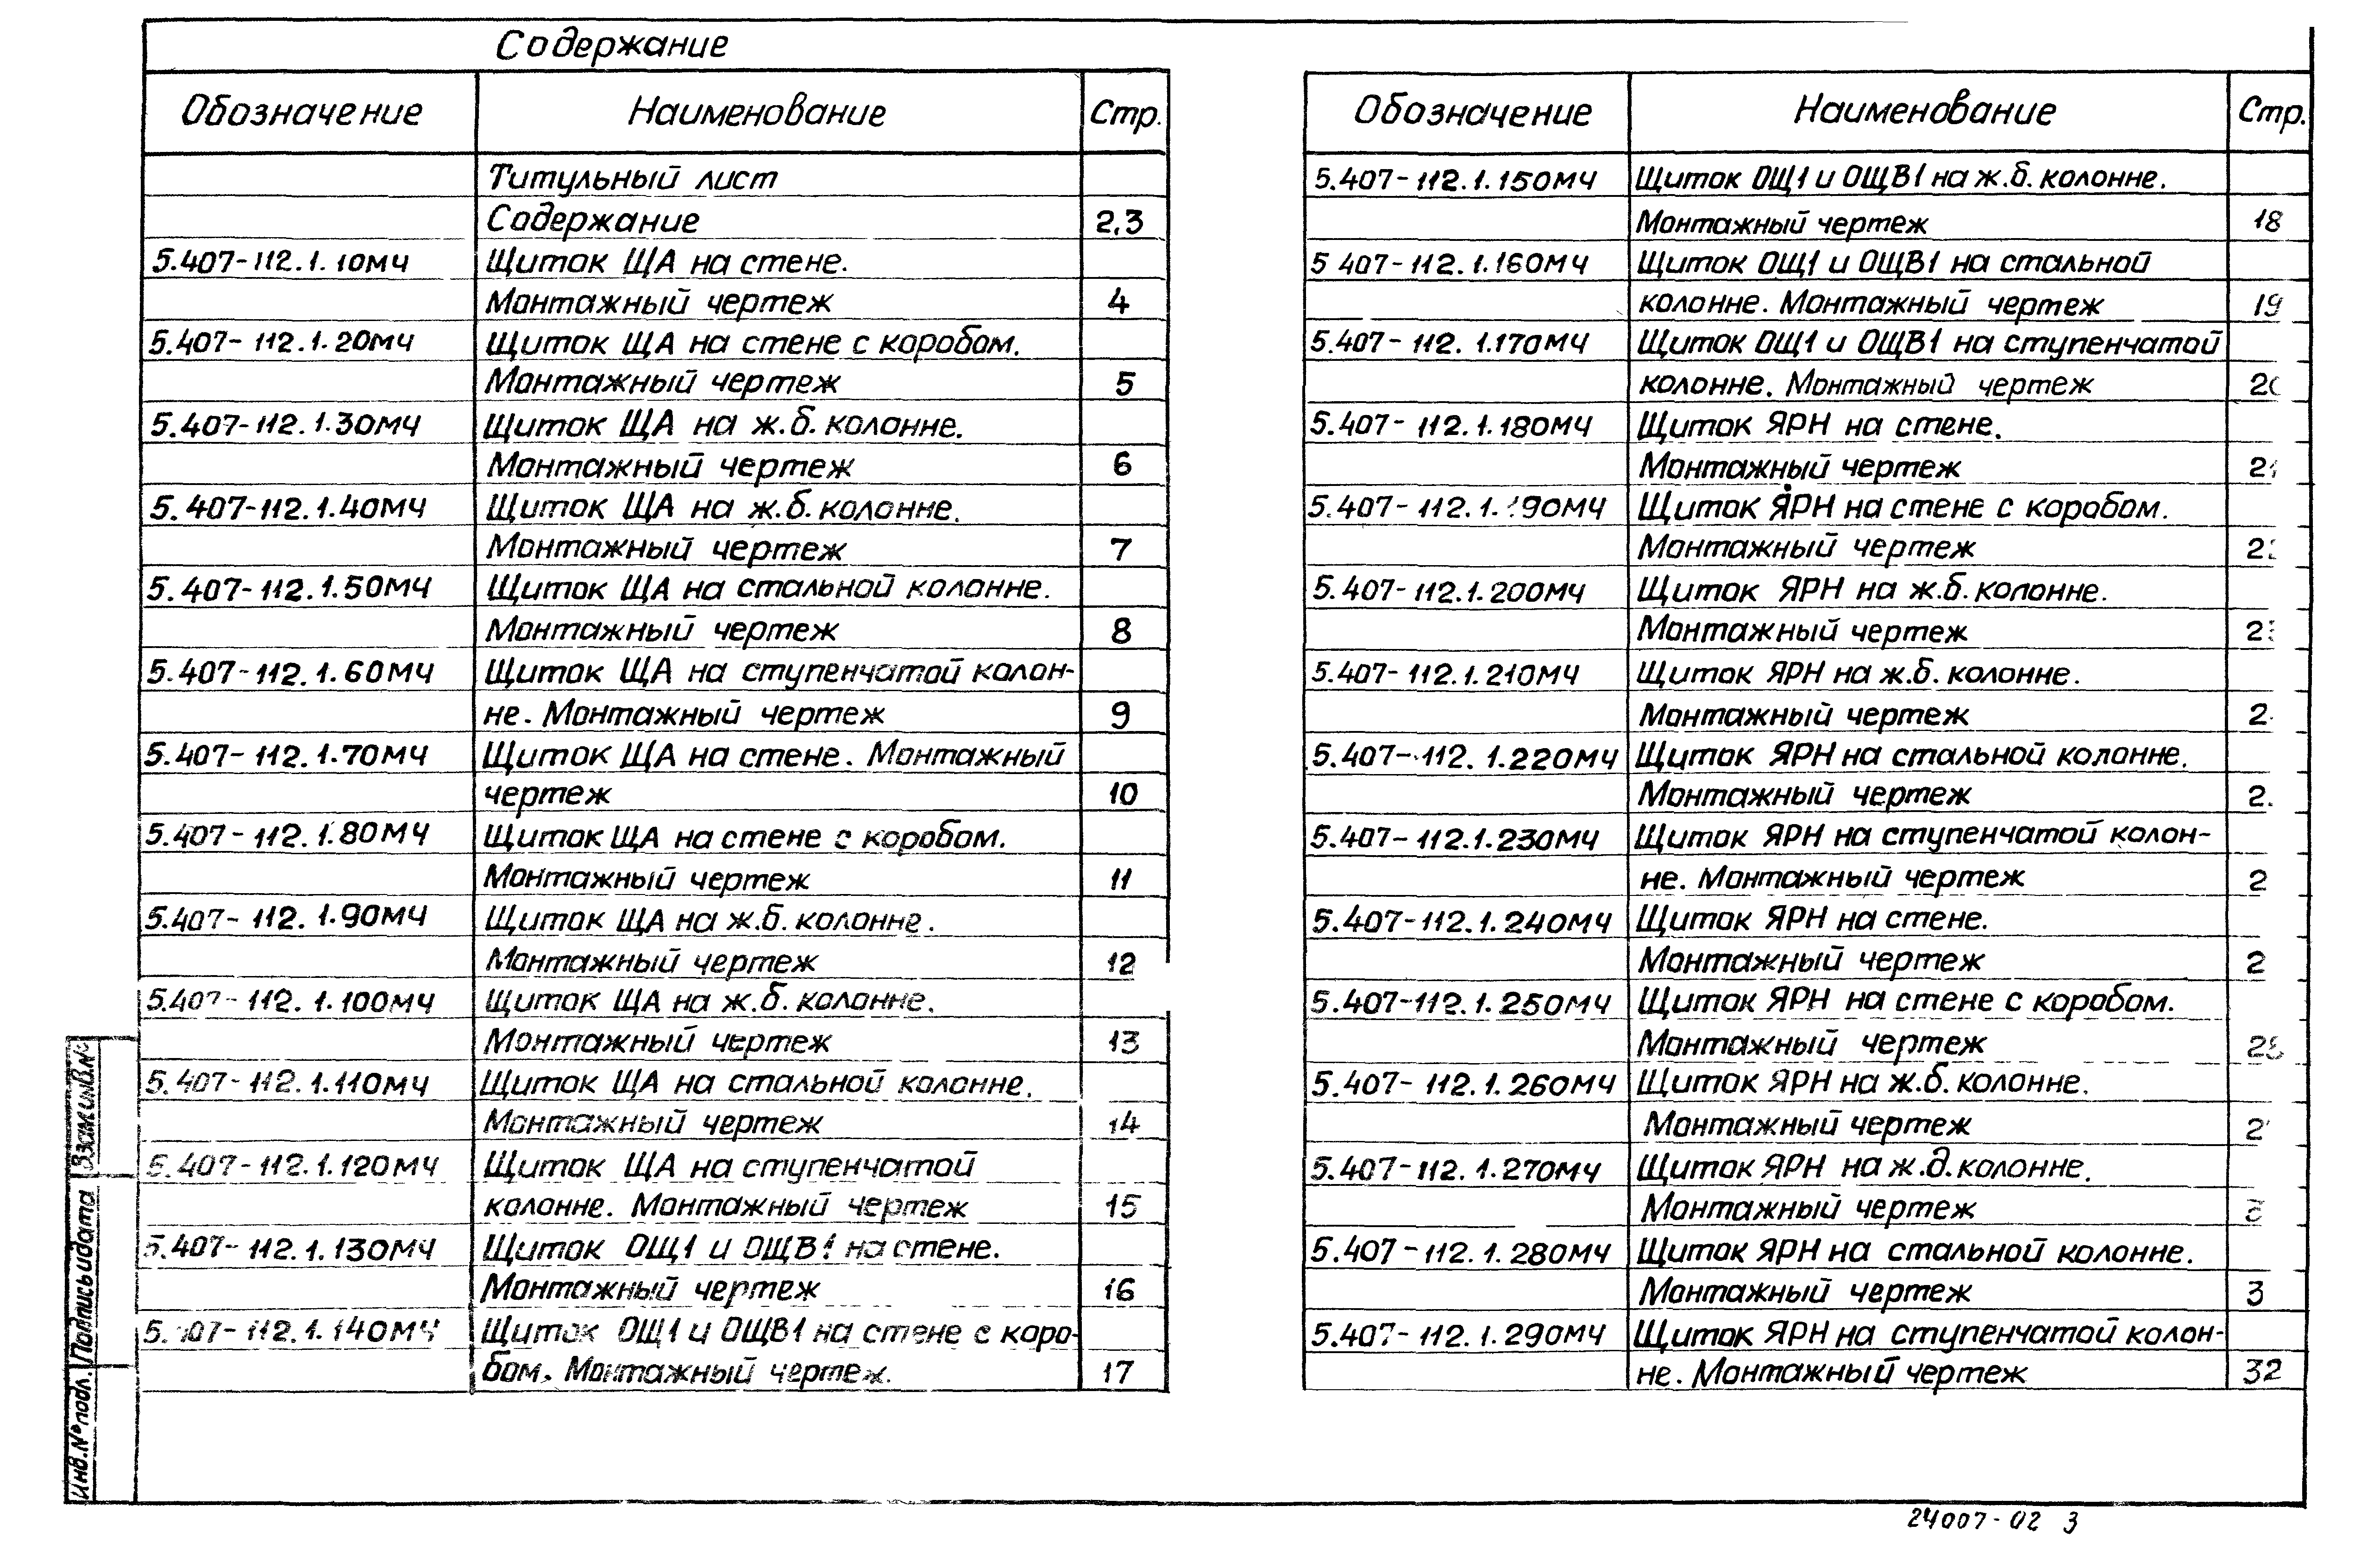 Содержание
Обозначение Наименование Стр.
Титульный лист
Содержание 2,3
5.407-112.1.10МЧ Щиток ЩА на стене.
Монтажный чертеж 4
5.407-112.1.20МЧ Щиток ЩА на стене с коробом.
Монтажный чертеж 5
5.407-112.1.30МЧ Щиток ЩА на ж.б. колонне.
Монтажный чертеж 6
5.407-112.1.40МЧ Щиток ЩА на ж.б. колонне.
Монтажный чертеж 7
5.407-112.1.50МЧ Щиток ЩА на стальной колонне.
Монтажный чертеж 8
5.407-112.1.60МЧ Щиток ЩА на ступенчатой колон-
не. Монтажный чертеж 9
5.407-112.1.70МЧ Щиток ЩА на стене. Монтажный
чертеж 10
5.407-112.1.80МЧ Щиток ЩА на стене с коробом.
Монтажный чертеж 11
5.407-112.1.90МЧ Щиток ЩА на ж.б. колонне.
Монтажный чертеж 12
5.407-112.1.100МЧ Щиток ЩА на ж.б. колонне.
Монтажный чертеж 13
5.407-112.1.110МЧ Щиток ЩА на стальной колонне.
Монтажный чертеж 14
5.407-112.1.120МЧ Щиток ЩА на ступенчатой
колонне. Монтажный чертеж 15
5.407-112.1.130МЧ Щиток ОЩ1 и ОЩВ1 на стене.
Монтажный чертеж 16
5.407-112.1.140МЧ Щиток ОЩ1 и ОЩВ1 на стене с коро-
бом. Монтажный чертеж. 17
Обозначение Наименование Стр.
5.407-112.1.150МЧ Щиток ОЩ1 и ОЩВ1 на ж.б. колонне.
Монтажный чертеж 18
5 407-112.1.160МЧ Щиток ОЩ1 и ОЩВ1 на стальной
колонне. Монтажный чертеж 19
5.407-112.1.170МЧ Щиток ОЩ1 и ОЩВ1 на ступенчатой
колонне. Монтажный чертеж 20
5.407-112.1.180МЧ Щиток ЯРН на стене.
Монтажный чертеж 21
5.407-112.1.190МЧ Щиток ЯРН на стене с коробом.
Монтажный чертеж
5.407-112.1.200МЧ Щиток ЯРН на ж.б. колонне.
Монтажный чертеж 23
5.407-112.1.210МЧ Щиток ЯРН на ж.б. колонне.
Монтажный чертеж
5.407-112.1.220МЧ Щиток ЯРН на стальной колонне.
Монтажный чертеж
5.407-112.1.230МЧ Щиток ЯРН на ступенчатой колон-
не. Монтажный чертеж
5.407-112.1.240МЧ Щиток ЯРН на стене.
Монтажный чертеж
5.407-112.1.250МЧ Щиток ЯРН на стене с коробом.
Монтажный чертеж 28
5.407-112.1.260МЧ Щиток ЯРН на ж.б. колонне.
Монтажный чертеж
5.407-112.1.270МЧ Щиток ЯРН на ж.д. колонне.
Монтажный чертеж
5.407-112.1.280МЧ Щиток ЯРН на стальной колонне.
Монтажный чертеж
5.407-112.1.290МЧ Щиток ЯРН на ступенчатой колон-
не. Монтажный чертеж 32
Инв.№ подл. Подпись и дата Взам.инв.№
24007-02 3